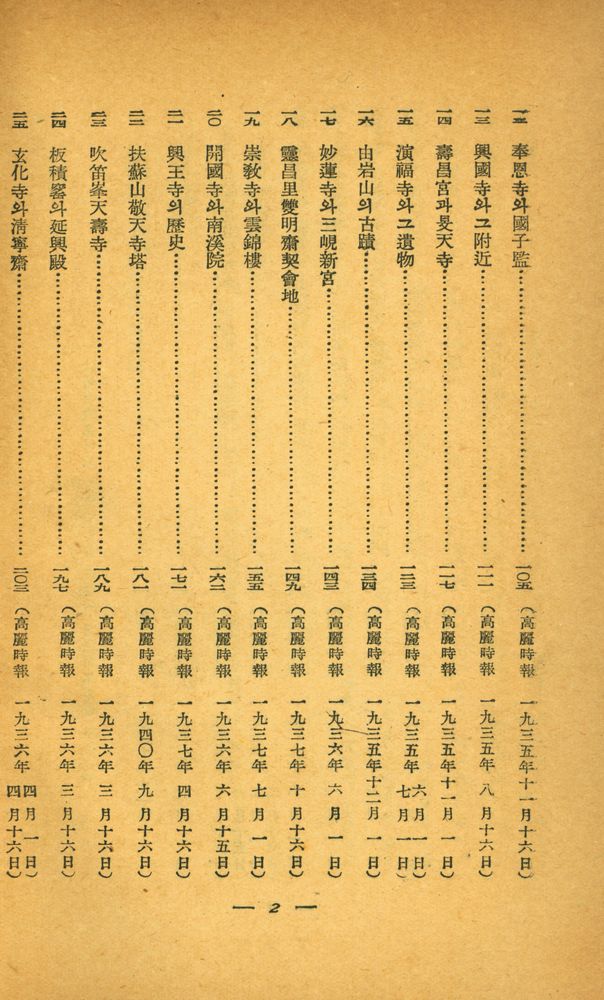 一二 奉恩寺와國子監……一〇五 (高麗時報 一九三五年十一月十六日)
一三 興國寺와그附近……一一一 (高麗時報 一九三五年 八 月十六日)
一四 壽昌宮과旻天寺……一一七 (高麗時報 一九三五年十一月 一 日)
一五 演福寺와그遺物……一二三 (高麗時報 一九三五年 六 月 一 日 七 月 一 日)
一六 由岩山의古蹟……一三四 (高麗時報 一九三五年十二月 一 日)
一七 妙蓮寺와三峴新宮……一四三 (高麗時報 一九三六年 六 月 一 日)
一八 靈昌里雙明齋契會地……一四九 (高麗時報 一九三七年 十 月十六日)
一九 崇敎寺와雲錦樓……一五五 (高麗時報 一九三七年 七 月 一 日)
二〇 開國寺와南溪院……一六二 (高麗時報 一九三六年 六 月十五日)
二一 興王寺의歷史……一七一 (高麗時報 一九三七年 四 月十六日)
二二 扶蘇山敬天寺塔……一八一 (高麗時報 一九四〇年 九 月十六日)
二三 吹笛峯天壽寺……一八九 (高麗時報 一九三六年 三 月十六日)
二四 板積窰와延興殿……一九七 (高麗時報 一九三六年 三 月十六日)
二五 玄化寺와淸寧齋……二〇三 (高麗時報 一九三六年 四 月 一 日 四 月十六日)
— 2 —